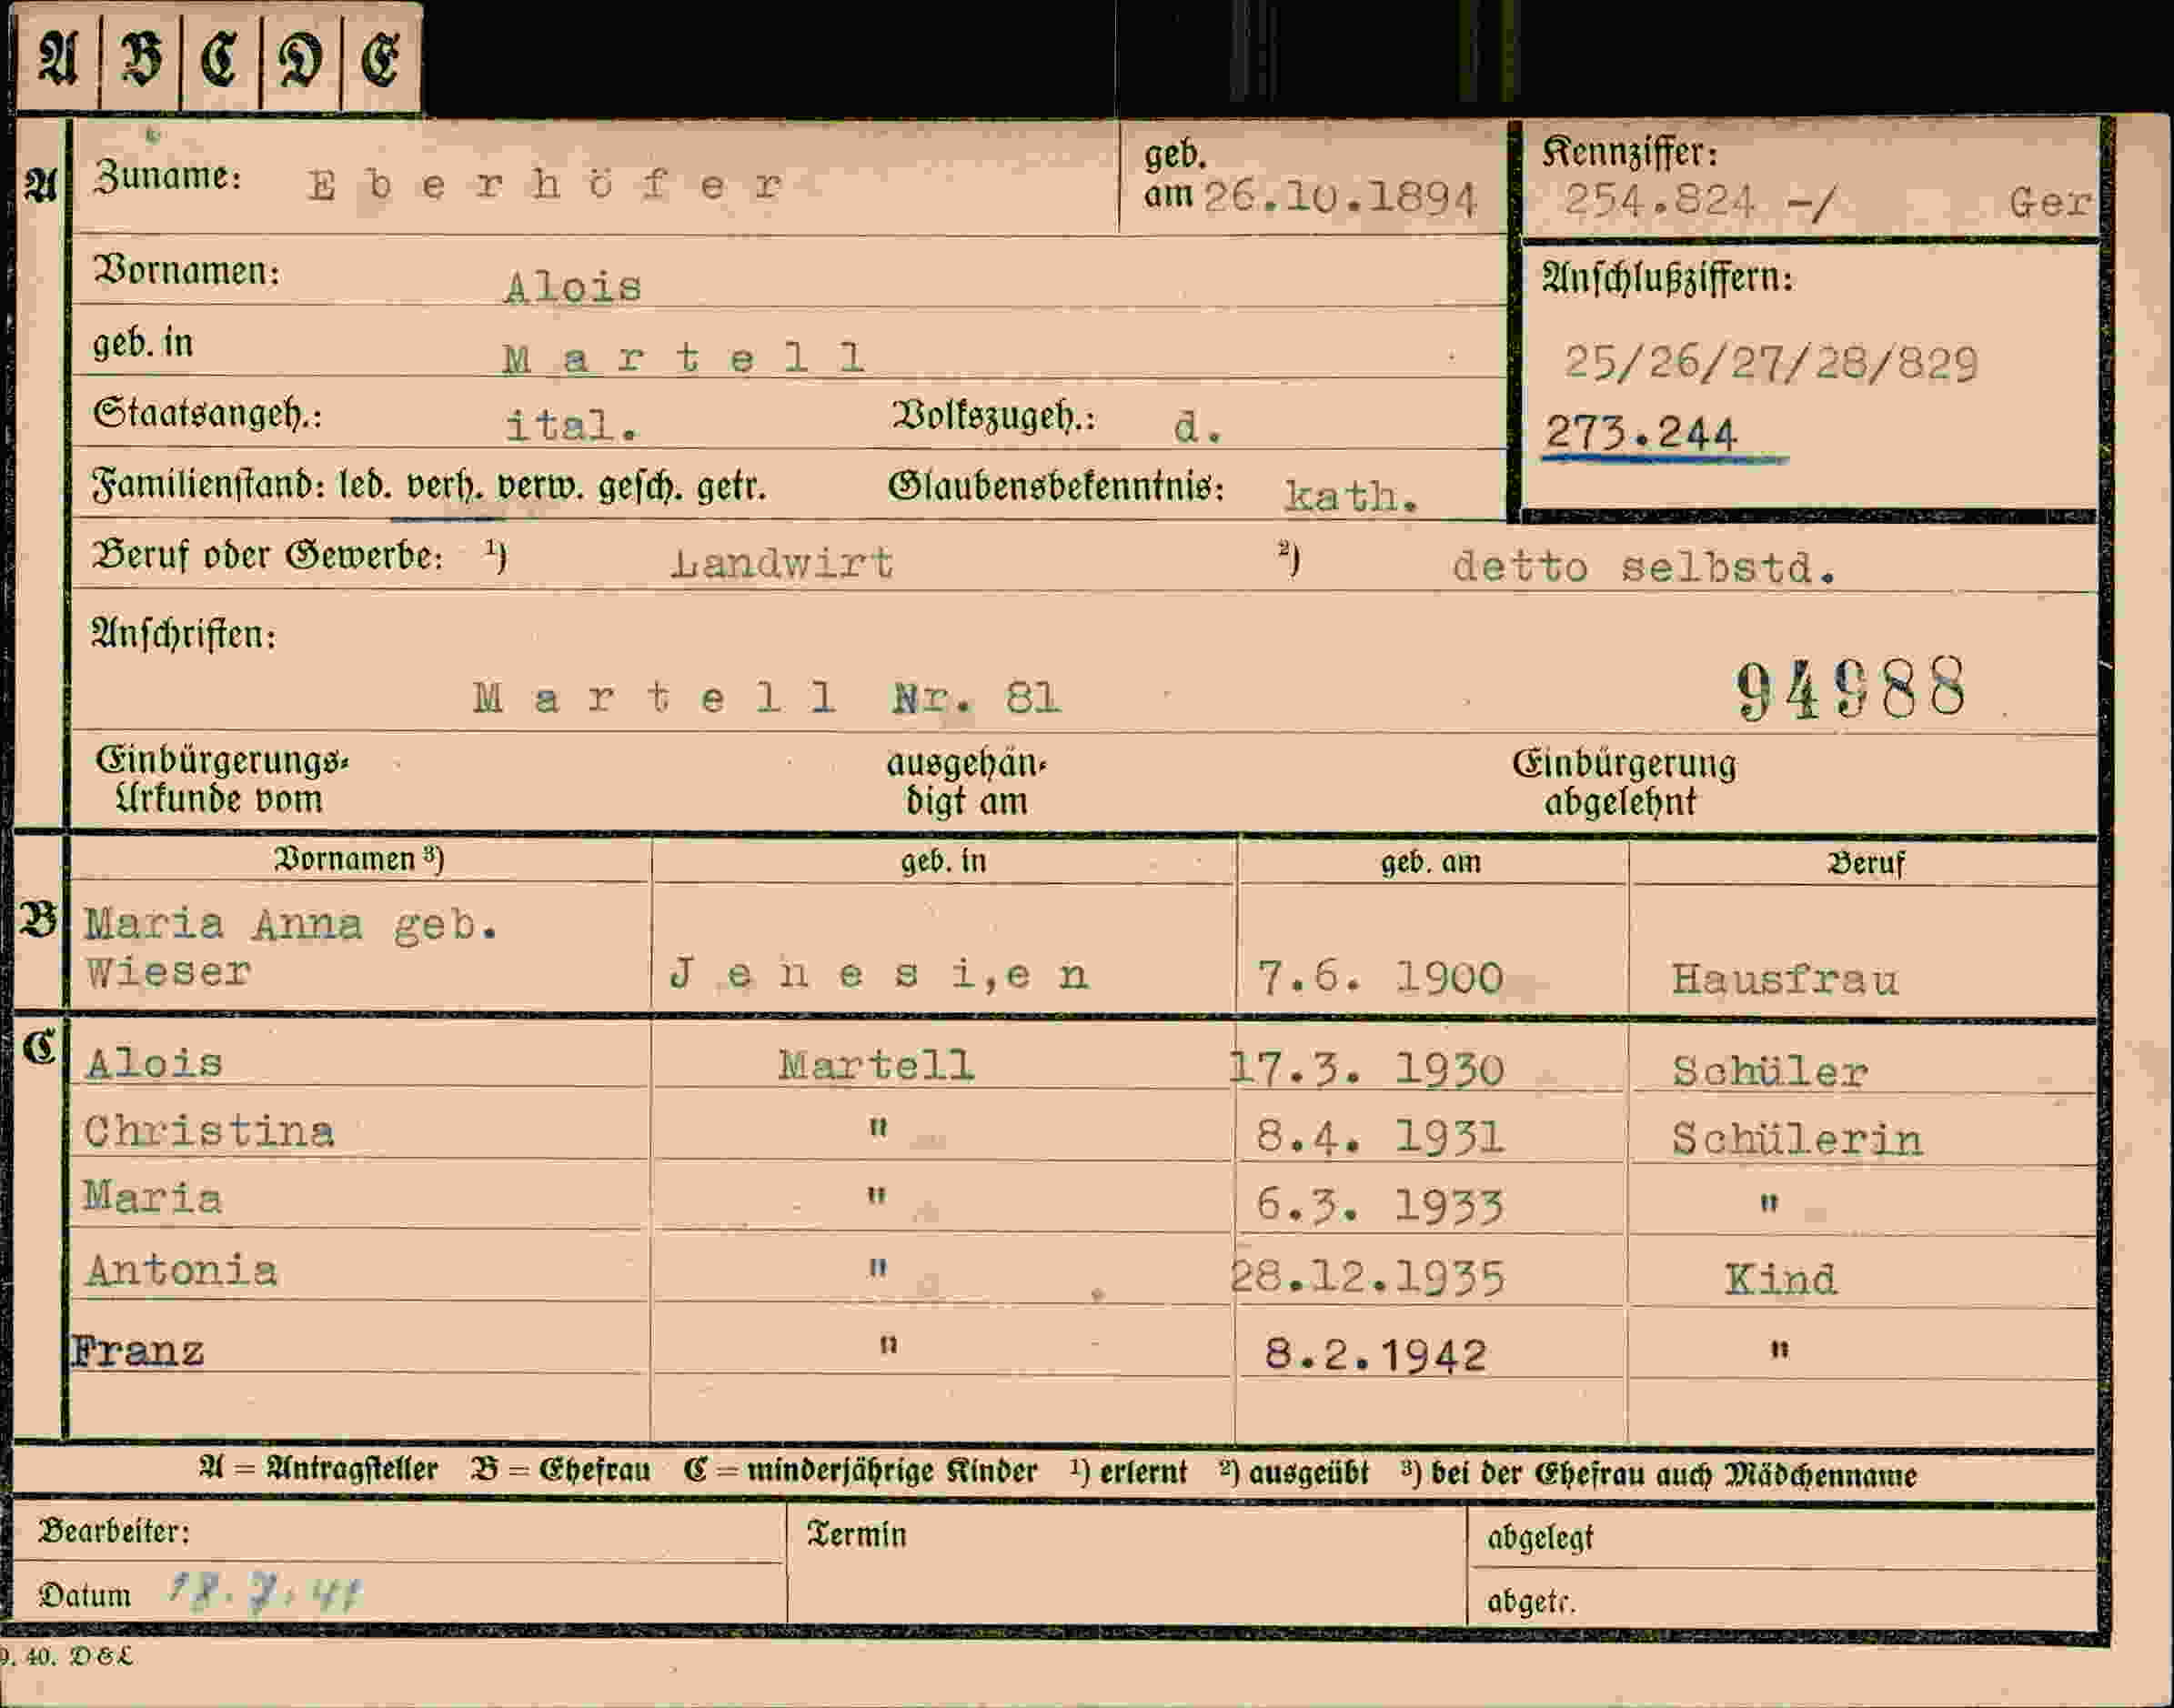 A B C D E
A Zuname: Eberhöfer geb. am 26.10.1894 Kennziffer: 254.824 -/ Ger
Vornamen: Alois Anschlußziffern:
geb. in Martell 25/26/27/28/829
Staatsangeh.: ital. Volkszugeh.: d. 273.244
Familienstand: led. verh. verw. gesch. getr. Glaubensbekenntnis: kath.
Beruf oder Gewerbe: ¹) Landwirt ²) detto selbstd.
Anschriften:
Martell Nr. 81 94988
Einbürgerungs- ausgehän- Einbürgerung
Urkunde vom digt am abgelehnt
Vornamen ³) geb. in geb. am Beruf
B Maria Anna geb.
Wieser Jenesi,en 7.6. 1900 Hausfrau
C Alois Martell 17.3. 1930 Schüler
Christina " 8.4. 1931 Schülerin
Maria " 6.3. 1933 "
Antonia " 28.12.1935 Kind
Franz " 8.2.1942 "
A = Antragsteller B = Ehefrau C = minderjährige Kinder ¹) erlernt ²) ausgeübt ³) bei der Ehefrau auch Mädchenname
Bearbeiter: Termin abgelegt
Datum 18.7.41 abgetr.
40. D & L